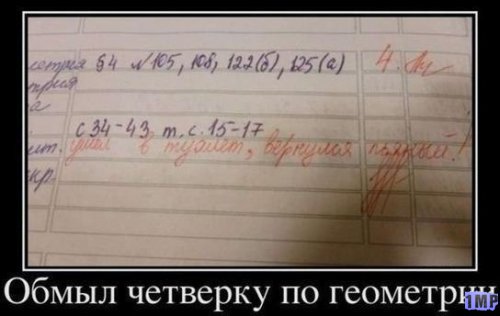 летрия §4 №105, 108, 122(б), 125(а) 4.
трия
а
с 34-43 т. с. 15-17
ит. ушел в туалет, вернулся пьяный!
кр.
Обмыл четверку по геометрии
1MP